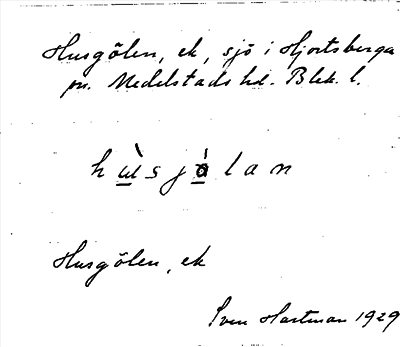 Husgölen, ek, sjö i Hjortsberga
sn. Medelstads hd. Blek. l.
hùsjàlan
Husgölen, ek
Sven Hartman 1929